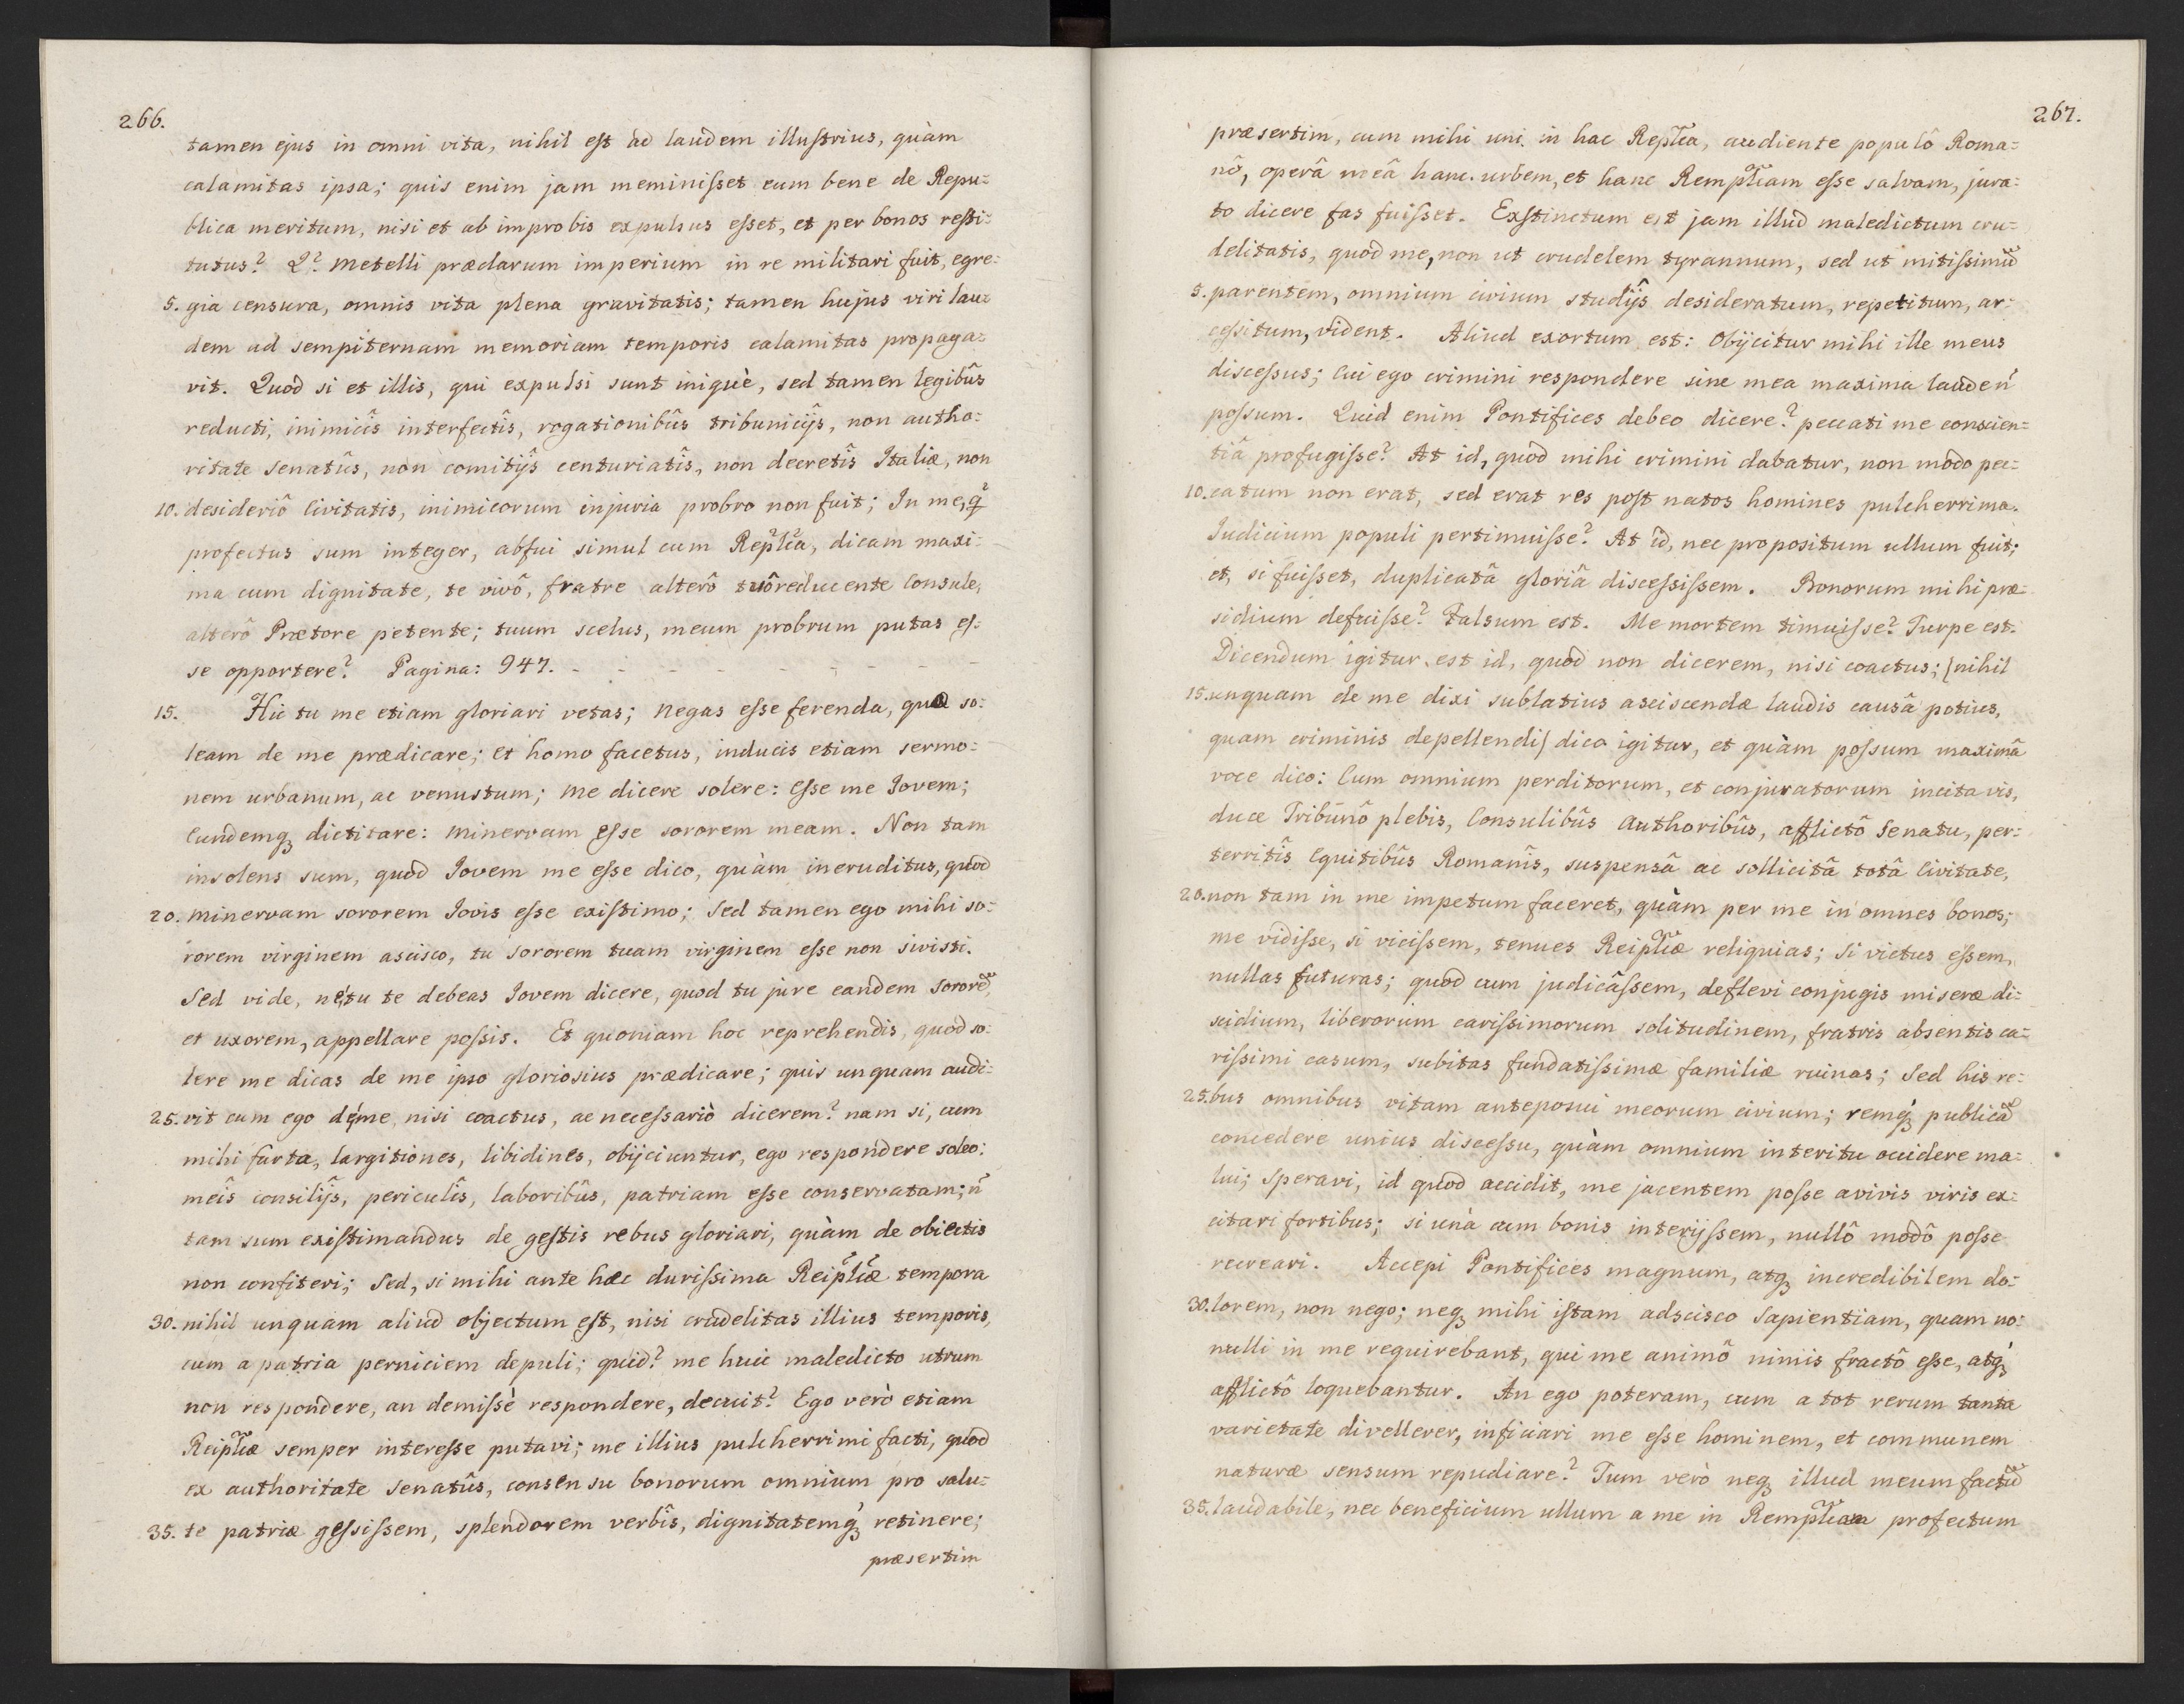 266.
tamen ejus in omni vita, nihil est ad laudem illustrius, quàm
calamitas ipsa; quis enim jam meminisset eum bene de Repu=
blica meritum, nisi et ab improbis expulsus esset, et per bonos resti=
tutus? Q? Metelli præclarum imperium in re militari fuit, egre=
5. gia censura, omnis vita plena gravitatis; tamen hujus viri lau=
dem ad sempiternam memoriam temporis calamitas propaga=
vit. Quod si et illis, qui expulsi sunt iniquè, sed tamen legibûs
reducti, inimicîs interfectîs, rogationibûs tribunicijs, non autho=
ritate senatûs, non comitijs centuriatîs, non decretîs Italiæ, non
10. desideriô Civitatis, inimicorum injuria probro non fuit; In me, q̃
profectus sum integer, abfui simul cum Replca, dicam maxi=
ma cum dignitate, te vivô, fratre alterô tuô reducente Consule,
alterô Prætore petente; tuum scelus, meum probrum putas es=
se opportere? Pagina: 947. - - - - - - - - -
15. Hic tu me etiam gloriari vetas; negas esse ferenda, quæ so=
leam de me prædicare; et homo facetus, inducis etiam sermo=
nem urbanum, ac venustum; me dicere solere: esse me Jovem;
Eundemq́ꝫ dictitare: minervam esse sororem meam. Non tam
insolens sum, quòd Jovem me esse dico, quàm ineruditus, quod
20. minervam sororem Jovis esse existimo; Sed tamen ego mihi so=
rorem virginem ascisco, tu sororem tuam virginem esse non sivisti.
Sed vide, ne tu te debeas Jovem dicere, quod tu jure eandem sororẽ,
et uxorem, appellare possis. Et quoniam hoc reprehendis, quod so=
lere me dicas de me ipso gloriosius prædicare; quis unquam audi=
25. vit cum ego de me, nisi coactus, ac necessariò dicerem? nam si, cum
mihi furta, largitiones, libidines, obijciuntur, ego respondere soleo:
meîs consilijs, periculîs, laboribûs, patriam esse conservatam; ñ
tam sum existimandus de gestis rebus gloriari, quàm de obiectis
non confiteri; Sed, si mihi ante hæc durissima Reiplcæ tempora
30. nihil unquam aliud objectum est, nisi crudelitas illius temporis,
cum a patria perniciem depuli; quid? me huic maledicto utrum
non respondere, an demissè respondere, decuit? Ego verò etiam
Reiplcæ semper interesse putavi; me illius pulcherrimi facti, quod
ex authoritate senatûs, consensu bonorum omnium pro salu=
35. te patriæ gessissem, splendorem verbîs, dignitatemq́ꝫ retinere;
præsertim
267.
præsertim, cum mihi uni in hac Replca, audiente populô Roma=
nô, operâ meâ hanc urbem, et hanc Remplcam esse salvam, jura=
to dicere fas fuisset. Exstinctum est jam illud maledictum cru=
delitatis, quod me, non ut crudelem tyrannum, sed ut mitissimũ
5. parentem, omnium civium studijs desideratum, repetitum, ar=
cessitum, vident. Aliud exortum est: Obijcitur mihi ille meus
discessus; Cui ego crimini respondere sine mea maxima laude ñ
possum. Quid enim Pontifices debeo dicere? peccati me conscien=
tiâ profugisse? At id, quod mihi crimini dabatur, non modo pec=
10. catum non erat, sed erat res post natos homines pulcherrima.
Iudicium populi pertimuisse? At id, nec propositum ullum fuit;
et, si fuisset, duplicatâ gloriâ discessissem. Bonorum mihi præ=
sidium defuisse? Falsum est. Me mortem timuisse? Turpe est.
Dicendum igitur est id, quod non dicerem, nisi coactus; (nihil
15. unquam de me dixi sublatius asciscendæ laudis causâ potius,
quam criminis depellendi) dico igitur, et quàm possum maximâ
voce dico: Cum omnium perditorum, et conjuratorum incita vis,
duce Tribunô plebis, Consulibûs Authoribûs, afflictô Senatu, per=
territîs Equitibûs Romanîs, suspensâ ac sollicitâ totâ Civitate,
20. non tam in me impetum faceret, quàm per me in omnes bonos;
me vidisse, si vicissem, tenues Reiplcæ reliquias; si victus essem,
nullas futuras; quod cum judicâssem, deflevi conjugis miseræ di=
scidium, liberorum carissimorum solitudinem, fratris absentis ca=
rissimi casum, subitas fundatissimæ familiæ ruinas; Sed his re=
25. bus omnibus vitam anteposui meorum civium; remq́ꝫ publicã
concedere unius discessu, quàm omnium interitu occidere ma=
lui; Speravi, id quod accidit, me jacentem posse a vivis viris ex=
citari fortibus; si unà cum bonis interijssem, nullô modô posse
recreari. Accepi Pontifices magnum, atqꝫ incredibilem do=
30. lorem, non nego; neqꝫ mihi istam adscisco Sapientiam, quam no=
nulli in me requirebant, qui me animô nimis fractô esse, atq́ꝫ
afflictô loquebantur. An ego poteram, cum a tot rerum tanta
varietate divellerer, inficiari me esse hominem, et communem
naturæ sensum repudiare? Tum verò neqꝫ illud meum factũ
35. laudabile, nec beneficium ullum a me in Remplcam profectum